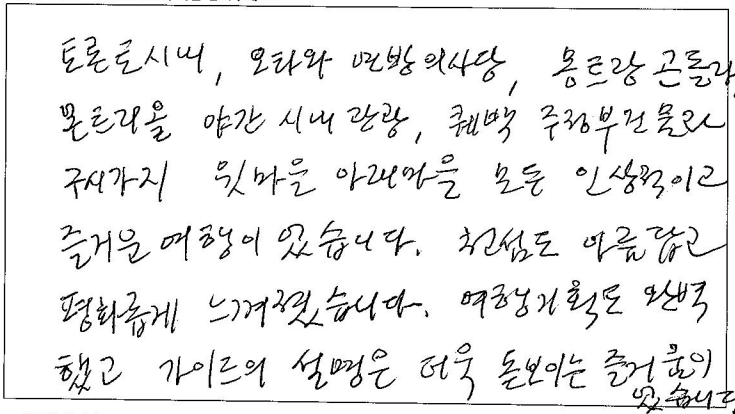 토론토시내, 오타와 연방의사당, 몽트랑 곤돌라,
몬트리올 야간 시내 관광, 퀘백 주정부건물과
구시가지 윗마을 아래마을 모든 인상적이고
즐거운 여행이 었습니다. 천섬도 아름답고
평화롭게 느껴졌습니다. 여행기획도 완벽
했고 가이드의 설명은 더욱 돋보이는 즐거움이
었습니다